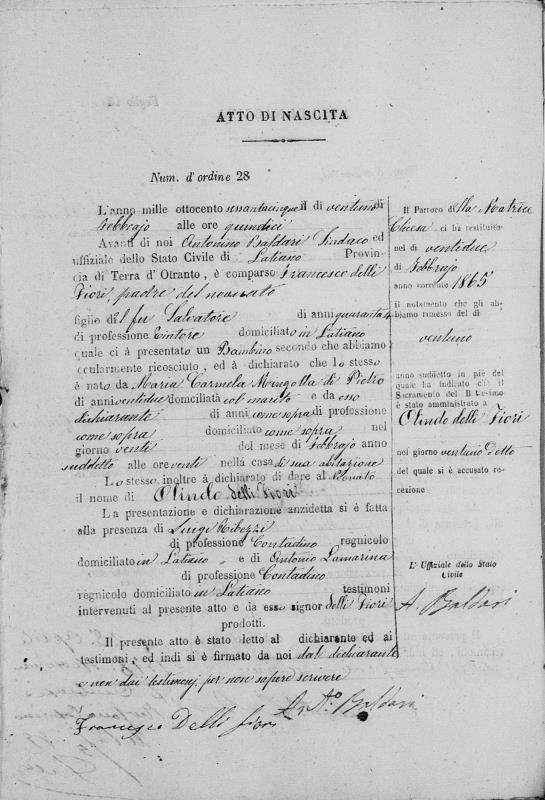 ATTO DI NASCITA
Num. d'ordine 28
L'anno mille ottocento sessantacinque il di ventuno di
Febbrajo alle ore quindici
Avanti di noi Antonino Baldari Sindaco ed
uffiziale dello Stato Civile di Latiano Provin-
cia di Terra d'Otranto, è comparso Francesco delli
Fiori, padre del neonato
figlio del fu Salvatore di anni quaranta
di professione Tintore domiciliato in Latiano
quale ci à presentato un Bambino secondo che abbiamo
occularmente ricosciuto, ed à dichiarato che lo stesso
è nato da Maria Carmela Mingolla di Pietro
di anni ventidue domiciliata col marito e da esso
dichiarante di anni come sopra di professione
come sopra domiciliato come sopra nel
giorno venti del mese di Febbrajo anno
suddetto alle ore venti nella casa di sua abitazione
Lo stesso inoltre à dichiarato di dare al Neonato
il nome di Olindo delli Fiori
La presentazione e dichiarazione anzidetta si è fatta
alla presenza di Luigi Ribezzi
di professione Contadino regnicolo
domiciliato in Latiano e di Antonio Lamarina
di professione Contadino
regnicolo domiciliato in Latiano testimoni
intervenuti al presente atto e da esso signor delli Fiori
prodotti.
Il presente atto è stato letto al dichiarante ed ai
testimoni, ed indi si è firmato da noi dal dichiarante
e non dai testimonj per non sapere scrivere
Francesco Delli Fiori
Baldari
Il Parroco della Matrice
Chiesa ci ha restituito
nel di ventidue
di Febbrajo
anno corrente 1865
il notamento che gli ab-
biamo rimesso del di
ventuno
anno sudetto in piè del
quale ha indicato che il
Sacramento del Battesimo
è stato amministrato a
Olindo delli Fiori
nel giorno ventuno detto
del quale si è accusato re-
cezione
L' Uffiziale dello Stato
Civile
A. Baldari